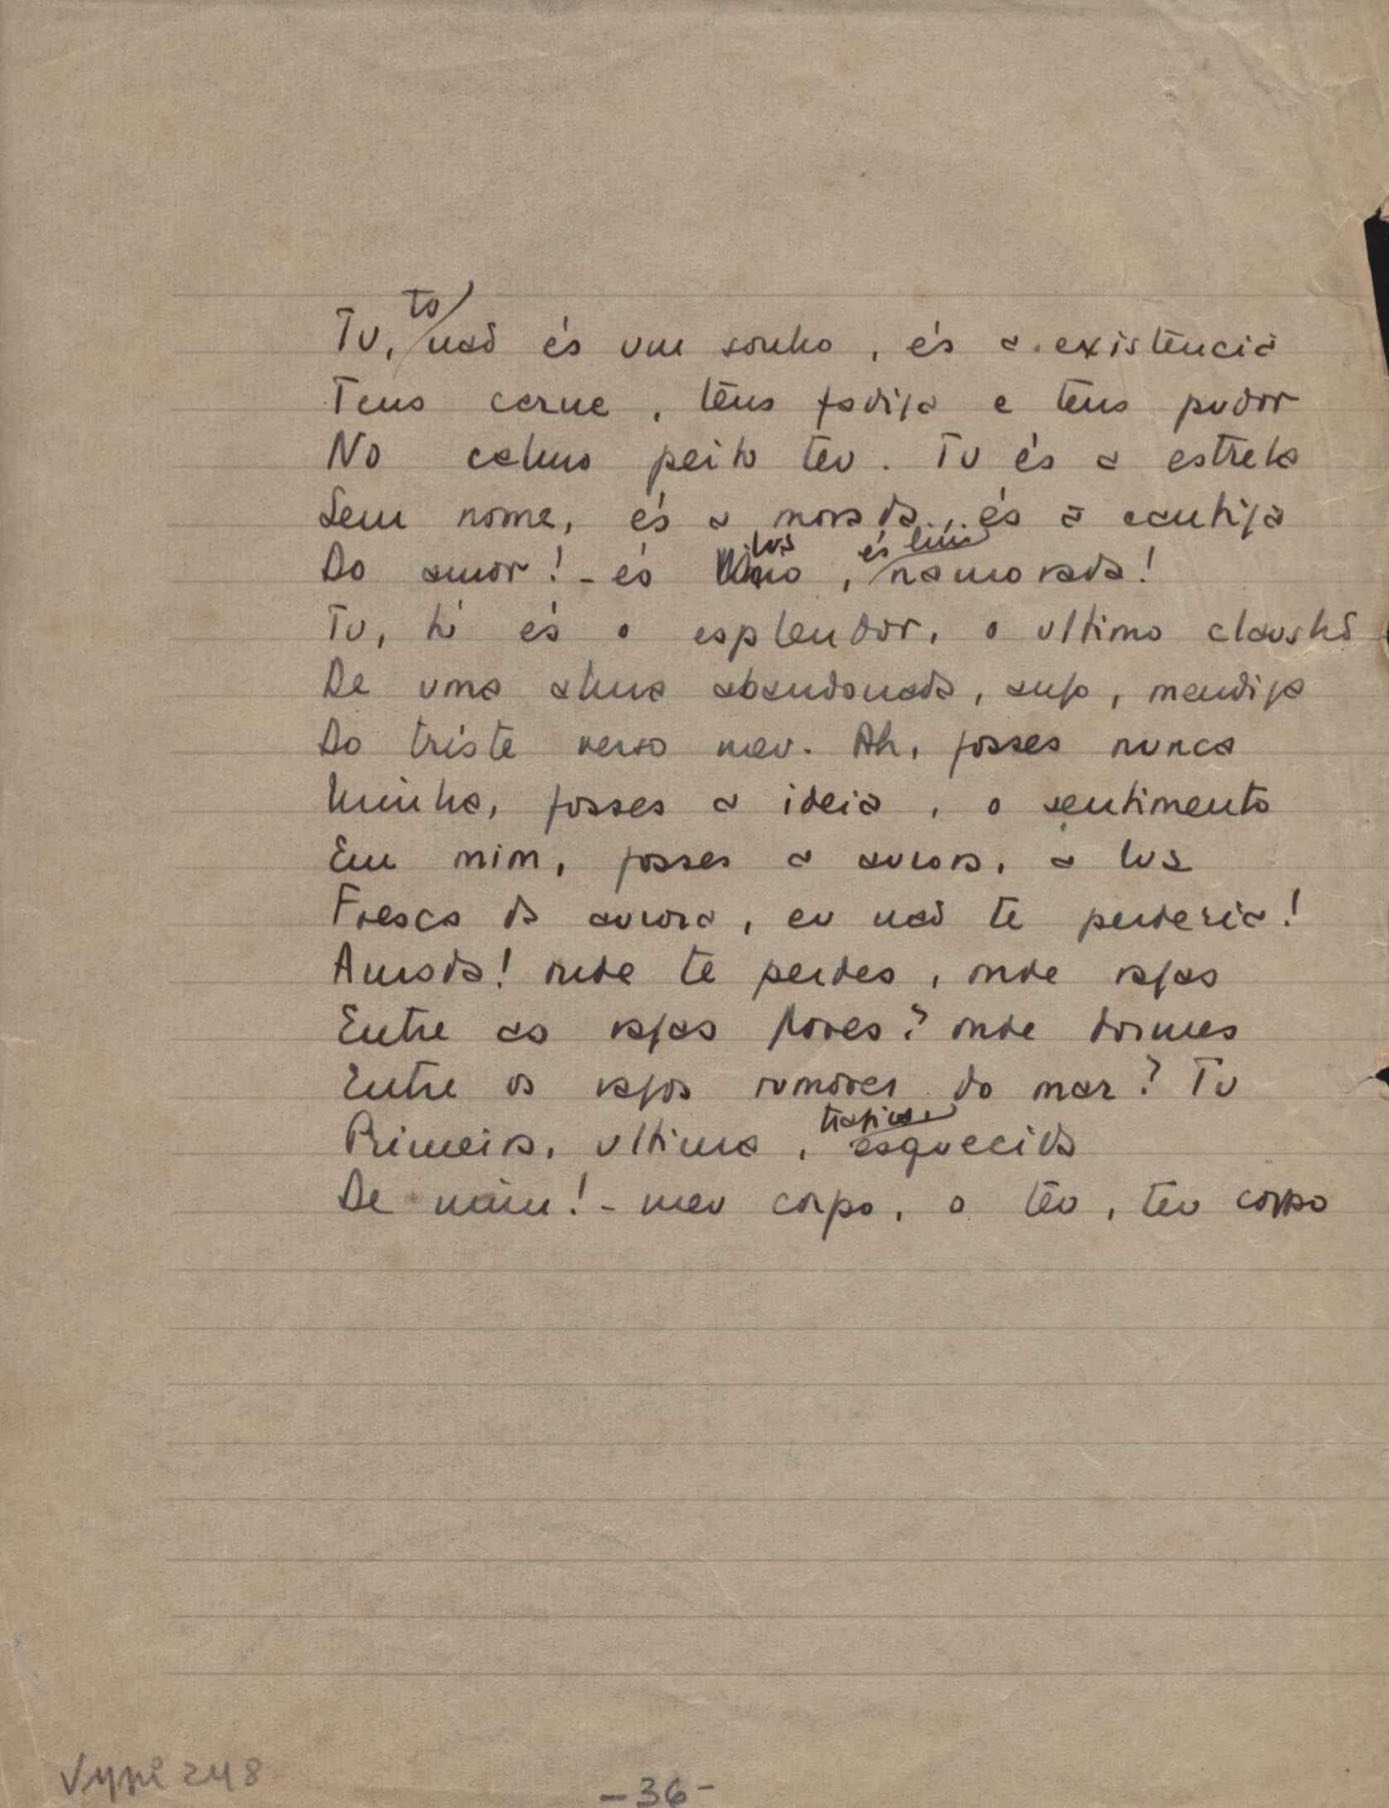 Tu, tu não és um sonho, és a existencia
Tens carne, tens fadiga e tens pudor
No calmo peito teu. Tu és a estrela
Sem nome, és a morada, és a cantiga
Do amor! - és luz, és lirio, namorada!
Tu, tú és o esplendor, o ultimo claustro
De uma alma abandonada, anjo, mendiga
Do triste verso meu. Ah, fosses nunca
Minha, fosses a ideia, o sentimento
Em mim, fosses a aurora, a luz
Fresca da aurora, eu não te perderia!
Amada! onde te perdes, onde vagas
Entre as vagas flores? onde dormes
Entre os vagos rumores do mar? Tu
Primeira, ultima, tragica esquecida
De mim! - meu corpo, o teu, teu corpo
248
-36-